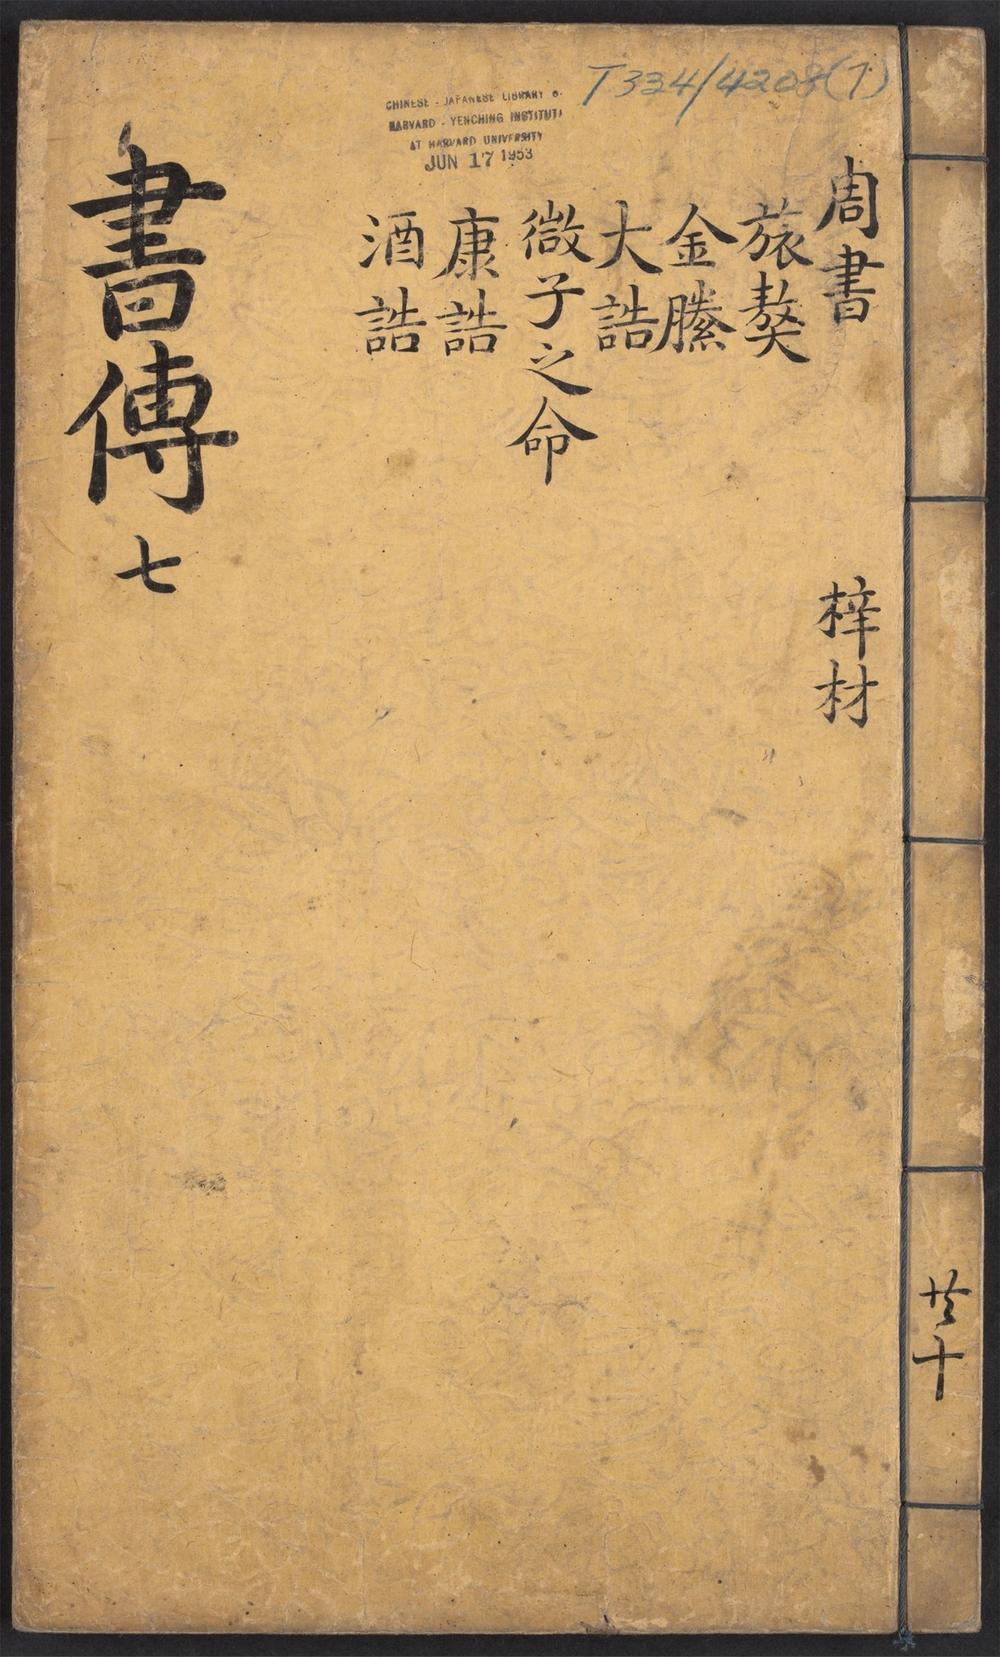 T334/4208(7)
CHINESE - JAPANESE LIBRARY O.
HARVARD - YENCHING INSTITUTE
AT HARVARD UNIVERSITY
JUN 17 1953
周書
梓材
旅獒
金縢
大誥
微子之命
康誥
酒誥
書傳 七
共十